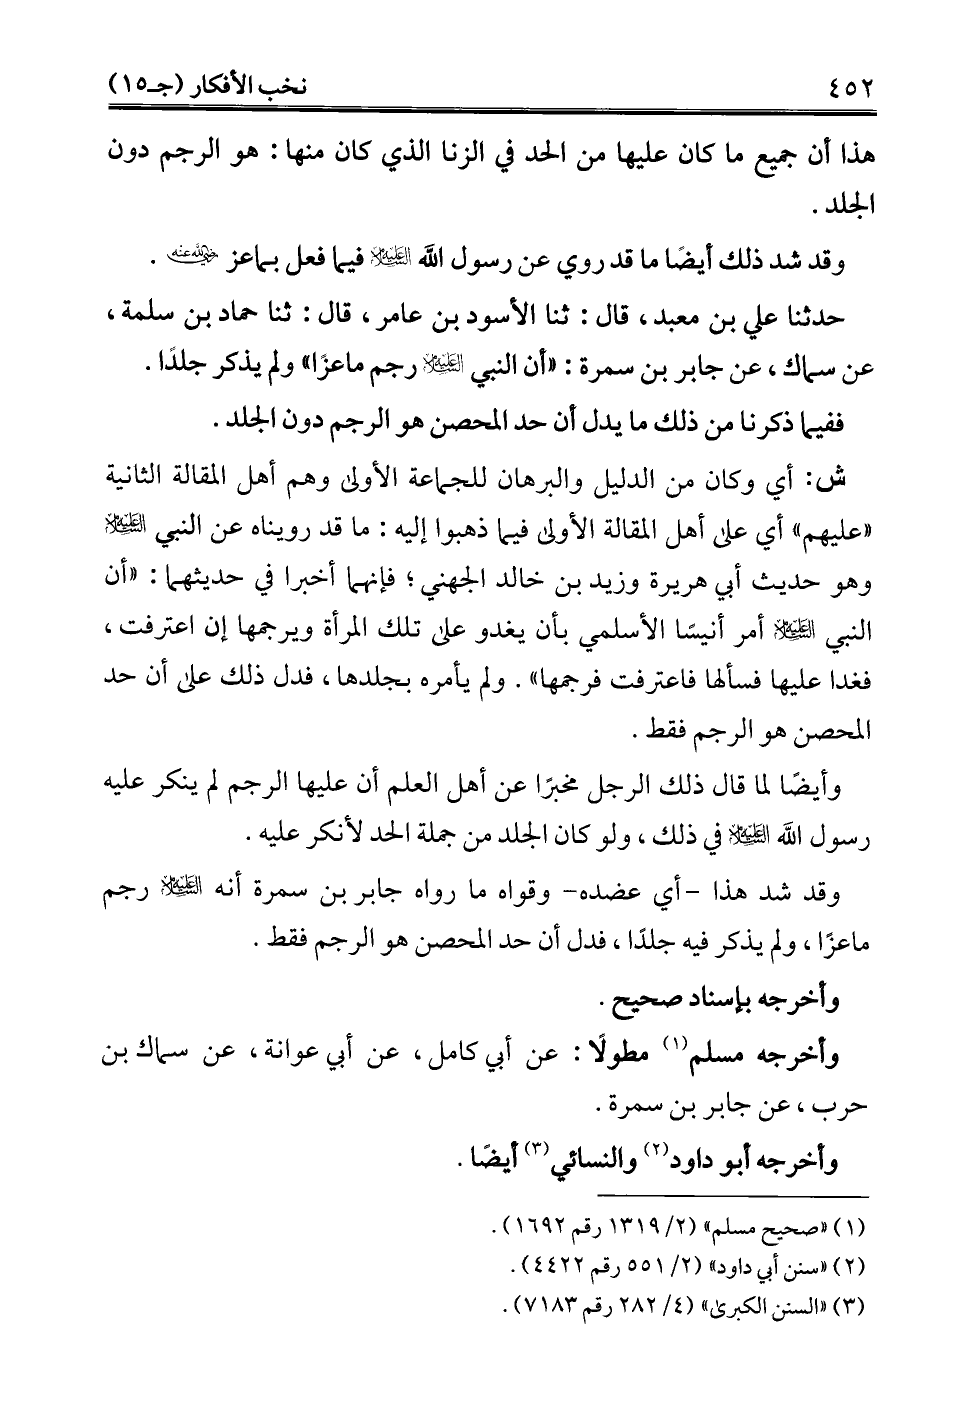 ٤٥٢ نخب الأفكار (جـ١٥)
هذا أن جميع ما كان عليها من الحد في الزنا الذي كان منها: هو الرجم دون
الجلد.
وقد شد ذلك أيضًا ما قد روي عن رسول الله عليه السلام فيما فعل بماعز رضي الله عنه.
حدثنا علي بن معبد، قال: ثنا الأسود بن عامر، قال: ثنا حماد بن سلمة،
عن سماك، عن جابر بن سمرة: «أن النبي عليه السلام رجم ماعزًا» ولم يذكر جلدًا.
ففيما ذكرنا من ذلك ما يدل أن حد المحصن هو الرجم دون الجلد.
ش: أي وكان من الدليل والبرهان للجماعة الأولى وهم أهل المقالة الثانية
«عليهم» أي على أهل المقالة الأولى فيما ذهبوا إليه: ما قد رويناه عن النبي عليه السلام
وهو حديث أبي هريرة وزيد بن خالد الجهني؛ فإنهما أخبرا في حديثهما: «أن
النبي عليه السلام أمر أنيسًا الأسلمي بأن يغدو على تلك المرأة ويرجمها إن اعترفت،
فغدا عليها فسألها فاعترفت فرجمها». ولم يأمره بجلدها، فدل ذلك على أن حد
المحصن هو الرجم فقط.
وأيضًا لما قال ذلك الرجل مخبرًا عن أهل العلم أن عليها الرجم لم ينكر عليه
رسول الله عليه السلام في ذلك، ولو كان الجلد من جملة الحد لأنكر عليه.
وقد شد هذا -أي عضده- وقواه ما رواه جابر بن سمرة أنه عليه السلام رجم
ماعزًا، ولم يذكر فيه جلدًا، فدل أن حد المحصن هو الرجم فقط.
وأخرجه بإسناد صحيح.
وأخرجه مسلم(١) مطولًا: عن أبي كامل، عن أبي عوانة، عن سماك بن
حرب، عن جابر بن سمرة.
وأخرجه أبو داود(٢) والنسائي(٣) أيضًا.
(١) «صحيح مسلم» (٢/ ١٣١٩ رقم ١٦٩٢).
(٢) «سنن أبي داود» (٢/ ٥٥١ رقم ٤٤٢٢).
(٣) «السنن الكبرى» (٤/ ٢٨٢ رقم ٧١٨٣).